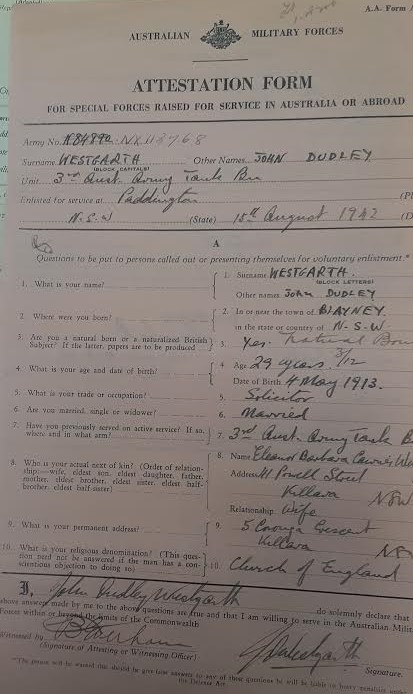 A.A. Form A
AUSTRALIAN MILITARY FORCES
ATTESTATION FORM
FOR SPECIAL FORCES RAISED FOR SERVICE IN AUSTRALIA OR ABROAD
Army No. NX113768
Surname WESTGARTH Other Names JOHN DUDLEY
(BLOCK CAPITALS)
Unit 3rd Aust. Army Tank Bn
Enlisted for service at Paddington
N.S.W (State) 15th August 1942
A
Questions to be put to persons called out or presenting themselves for voluntary enlistment.*
1. What is your name? 1. Surname WESTGARTH
(BLOCK LETTERS)
Other names JOHN DUDLEY
2. Where were you born? 2. In or near the town of BLAYNEY
in the state or country of N-S-W.
3. Are you a natural born or a naturalized British
Subject? If the latter, papers are to be produced 3. Yes. Natural Born
4. What is your age and date of birth? 4. Age 29 years 3/12
Date of Birth 4 May 1913.
5. What is your trade or occupation? 5. Solicitor
6. Are you married, single or widower? 6. Married
7. Have you previously served on active service? If so,
where and in what arm? 7. 3rd Aust. Army Tank B
8. Who is your actual next of kin? (Order of relation-
ship:—wife, eldest son, eldest daughter, father,
mother, eldest brother, eldest sister, eldest half-
brother, eldest half-sister) 8. Name Eleanor Barbara
Address 41 Powell Street
Killara NSW
Relationship Wife
9. What is your permanent address? 9. 5 Crescent
Killara
10. What is your religious denomination? (This ques-
tion need not be answered if the man has a con-
scientious objection to doing so) 10. Church of England
I, John Dudley Westgarth do solemnly declare that
above answers made by me to the above questions are true and that I am willing to serve in the Australian Milit
Forces within or beyond the limits of the Commonwealth
Witnessed by
(Signature of Attesting or Witnessing Officer) Signature.
*The person will be warned that should he give false answers to any of these questions he will be liable to heavy penalties under
the Defence Act